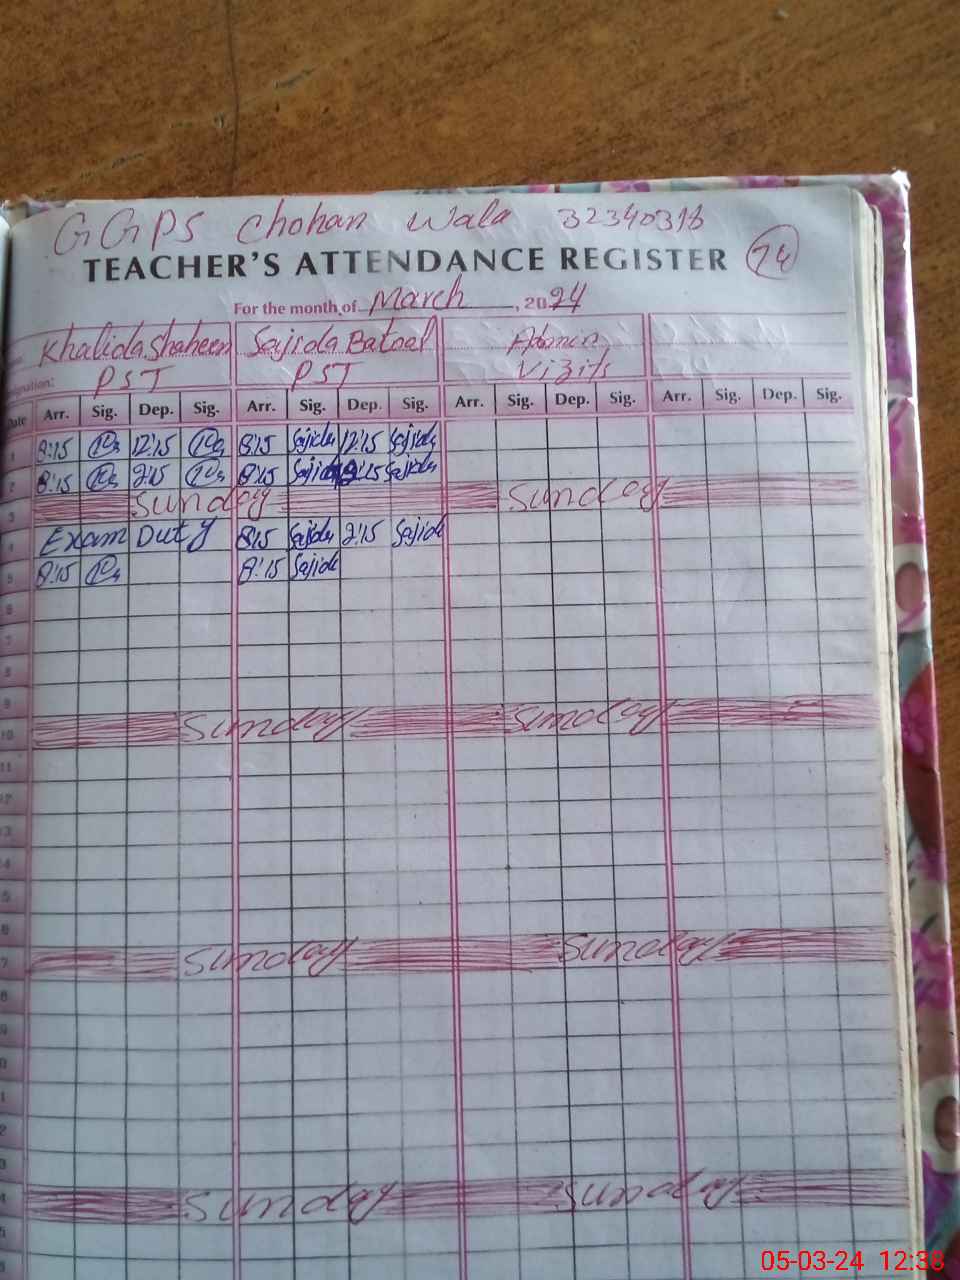 GGPS Chohan Wala 32340318
TEACHER'S ATTENDANCE REGISTER 24
For the month of March, 2024
Khalida Shaheen Sajida Batool Admin
PST PST Vizits
Date Arr. Sig. Dep. Sig. Arr. Sig. Dep. Sig. Arr. Sig. Dep. Sig. Arr. Sig. Dep. Sig.
1 8:15 12:15 8:15 Sajida 12:15 Sajida
2 8:15 2:15 8:15 Sajida 2:15 Sajida
3 Sunday Sunday
4 Exam Duty 8:15 Sajida 2:15 Sajida
5 8:15 8:15 Sajida
6
7
8
9
10 Sunday Sunday
11
12
13
4
5
6
7 Sunday Sunday
8
9
0
1
2
3
4 Sunday Sunday
5
05-03-24 12:38